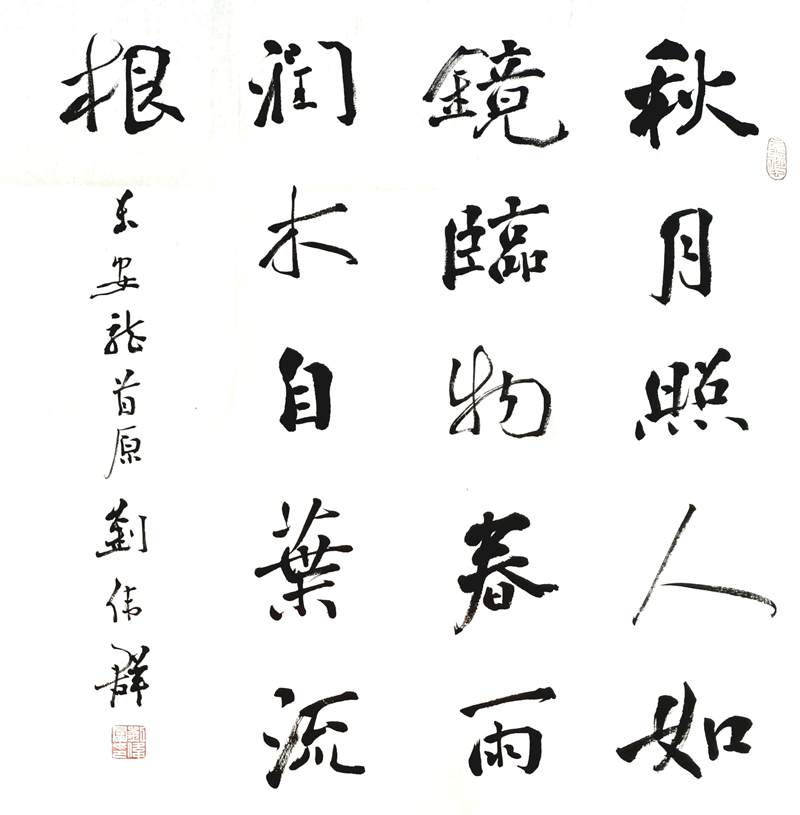 秋月照人如
鏡臨物春雨
润木自葉流
根
长安龍首原 劉伟群